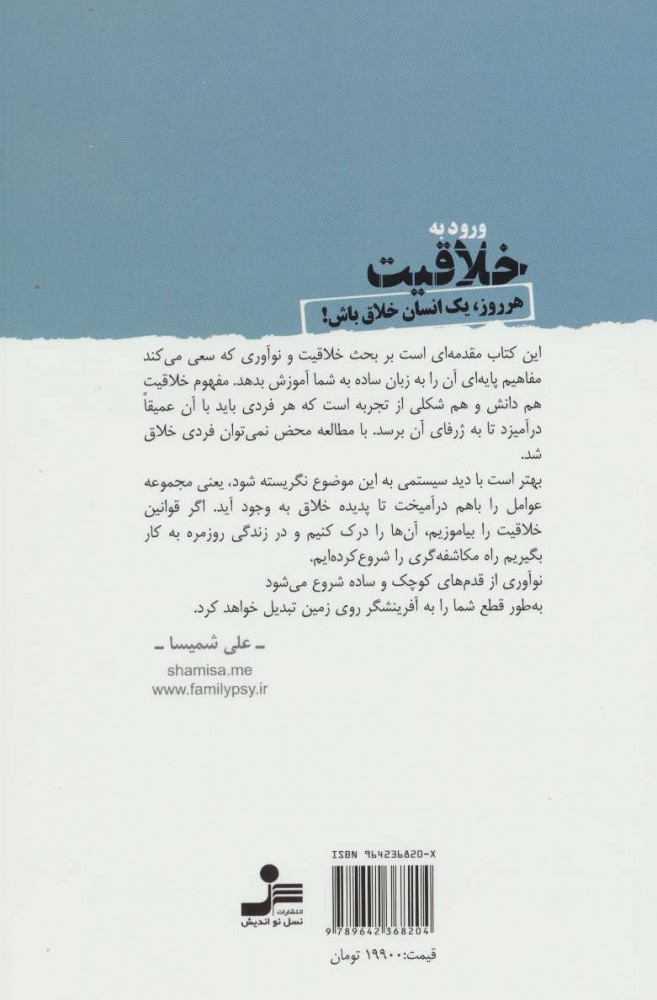 ورود به
خلاقیت
هر روز، یک انسان خلاق باش!
این کتاب مقدمه‌ای است بر بحث خلاقیت و نوآوری که سعی می‌کند
مفاهیم پایه‌ای آن را به زبان ساده به شما آموزش بدهد. مفهوم خلاقیت
هم دانش و هم شکلی از تجربه است که هر فردی باید با آن عمیقاً
درآمیزد تا به ژرفای آن برسد. با مطالعه محض نمی‌توان فردی خلاق
شد.
بهتر است با دید سیستمی به این موضوع نگریسته شود، یعنی مجموعه
عوامل را باهم درآمیخت تا پدیده خلاق به وجود آید. اگر قوانین
خلاقیت را بیاموزیم، آن‌ها را درک کنیم و در زندگی روزمره به کار
بگیریم راه مکاشفه‌گری را شروع‌کرده‌ایم.
نوآوری از قدم‌های کوچک و ساده شروع می‌شود
به‌طور قطع شما را به آفرینشگر روی زمین تبدیل خواهد کرد.
ـ علی شمیسا ـ
shamisa.me
www.familypsy.ir
ISBN 964236820-X
9 789642 368204
انتشارات
نسل نو اندیش
قیمت: ۱۹۹۰۰ تومان